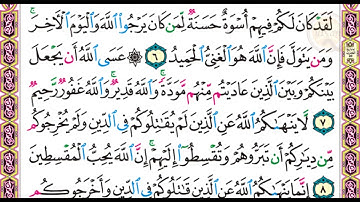 لَقَدْ كَانَ لَكُمْ فِيهِمْ أُسْوَةٌ حَسَنَةٌ لِّمَن كَانَ يَرْجُوا۟ ٱللَّهَ وَٱلْيَوْمَ ٱلْءَاخِرَ ۚ
وَمَن يَتَوَلَّ فَإِنَّ ٱللَّهَ هُوَ ٱلْغَنِىُّ ٱلْحَمِيدُ ٦ ۞ عَسَى ٱللَّهُ أَن يَجْعَلَ
بَيْنَكُمْ وَبَيْنَ ٱلَّذِينَ عَادَيْتُم مِّنْهُم مَّوَدَّةً ۚ وَٱللَّهُ قَدِيرٌ ۚ وَٱللَّهُ غَفُورٌ رَّحِيمٌ
٧ لَّا يَنْهَىٰكُمُ ٱللَّهُ عَنِ ٱلَّذِينَ لَمْ يُقَٰتِلُوكُمْ فِى ٱلدِّينِ وَلَمْ يُخْرِجُوكُم
مِّن دِيَٰرِكُمْ أَن تَبَرُّوهُمْ وَتُقْسِطُوٓا۟ إِلَيْهِمْ ۚ إِنَّ ٱللَّهَ يُحِبُّ ٱلْمُقْسِطِينَ
٨ إِنَّمَا يَنْهَىٰكُمُ ٱللَّهُ عَنِ ٱلَّذِينَ قَٰتَلُوكُمْ فِى ٱلدِّينِ وَأَخْرَجُوكُم